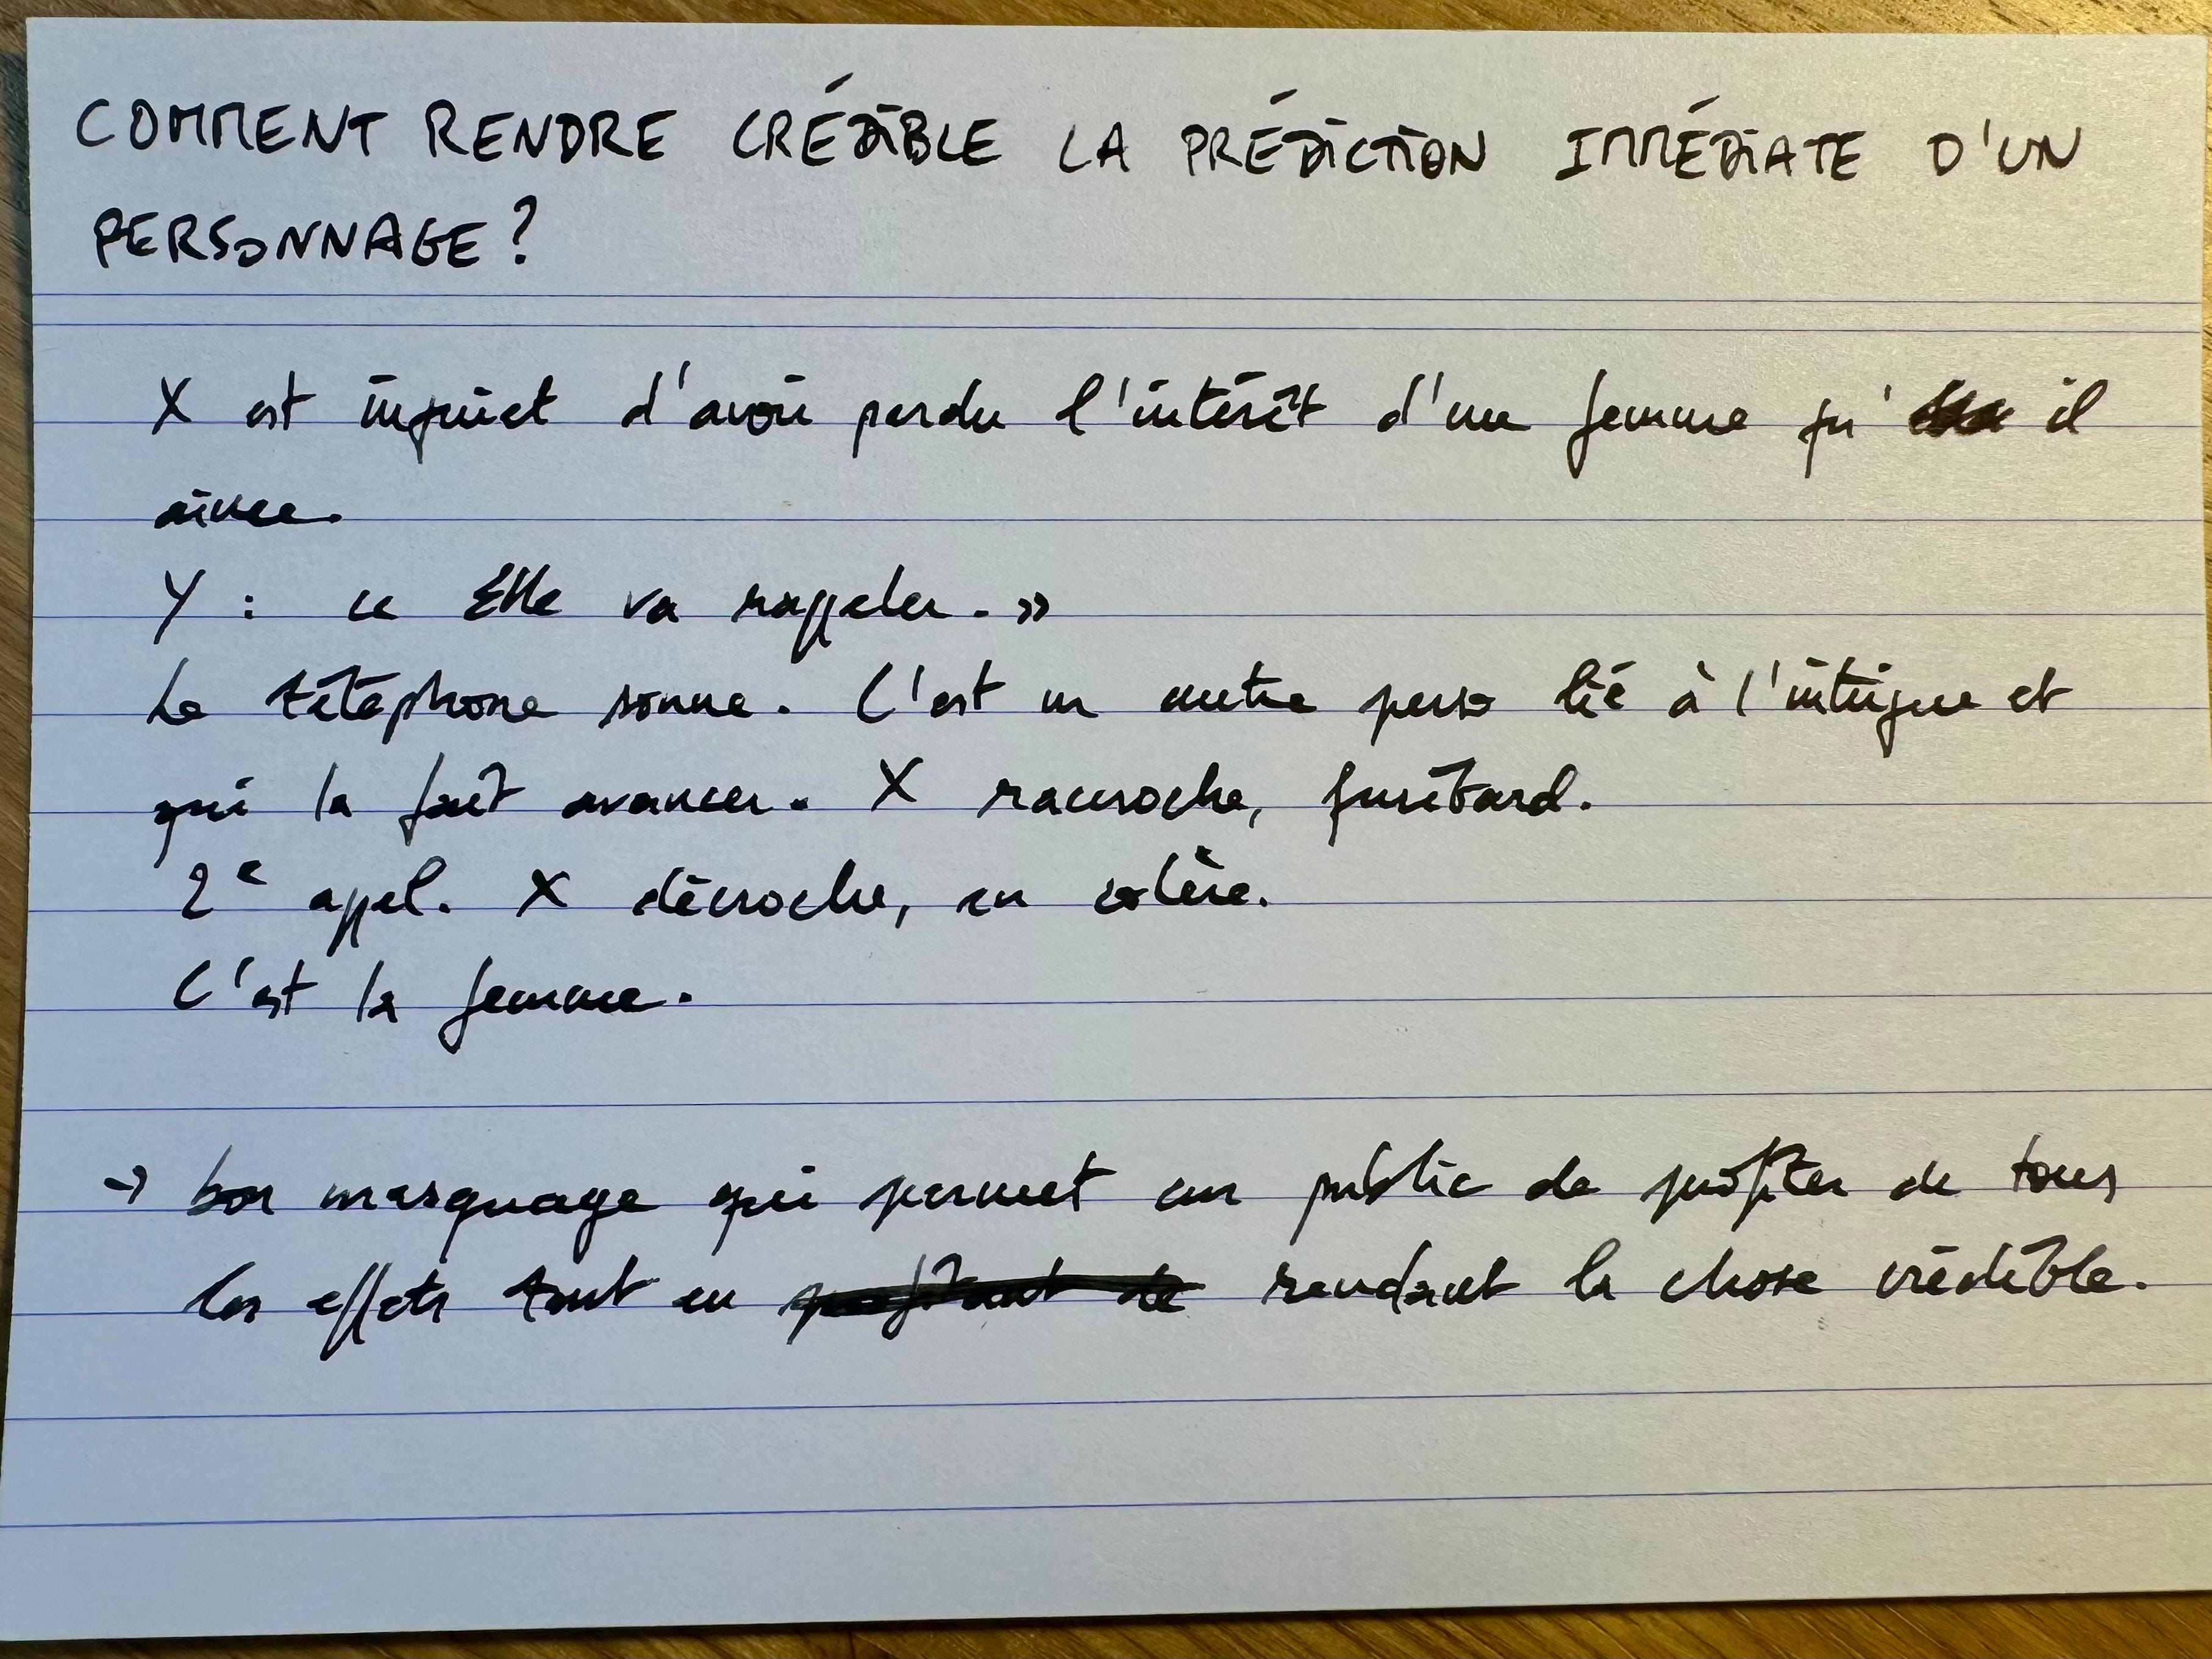 COMMENT RENDRE CRÉDIBLE LA PRÉDICTION IMMÉDIATE D'UN
PERSONNAGE ?
X est inquiet d'avoir perdu l'intérêt d'une femme qu' il
aime.
Y : « Elle va rappeler. »
Le téléphone sonne. C'est un autre perso lié à l'intrigue et
qui la fait avancer. X raccroche, furibard.
2e appel. X décroche, en colère.
C'est la femme.
→ bon masquage qui permet au public de profiter de tous
les effets tout en rendant la chose crédible.